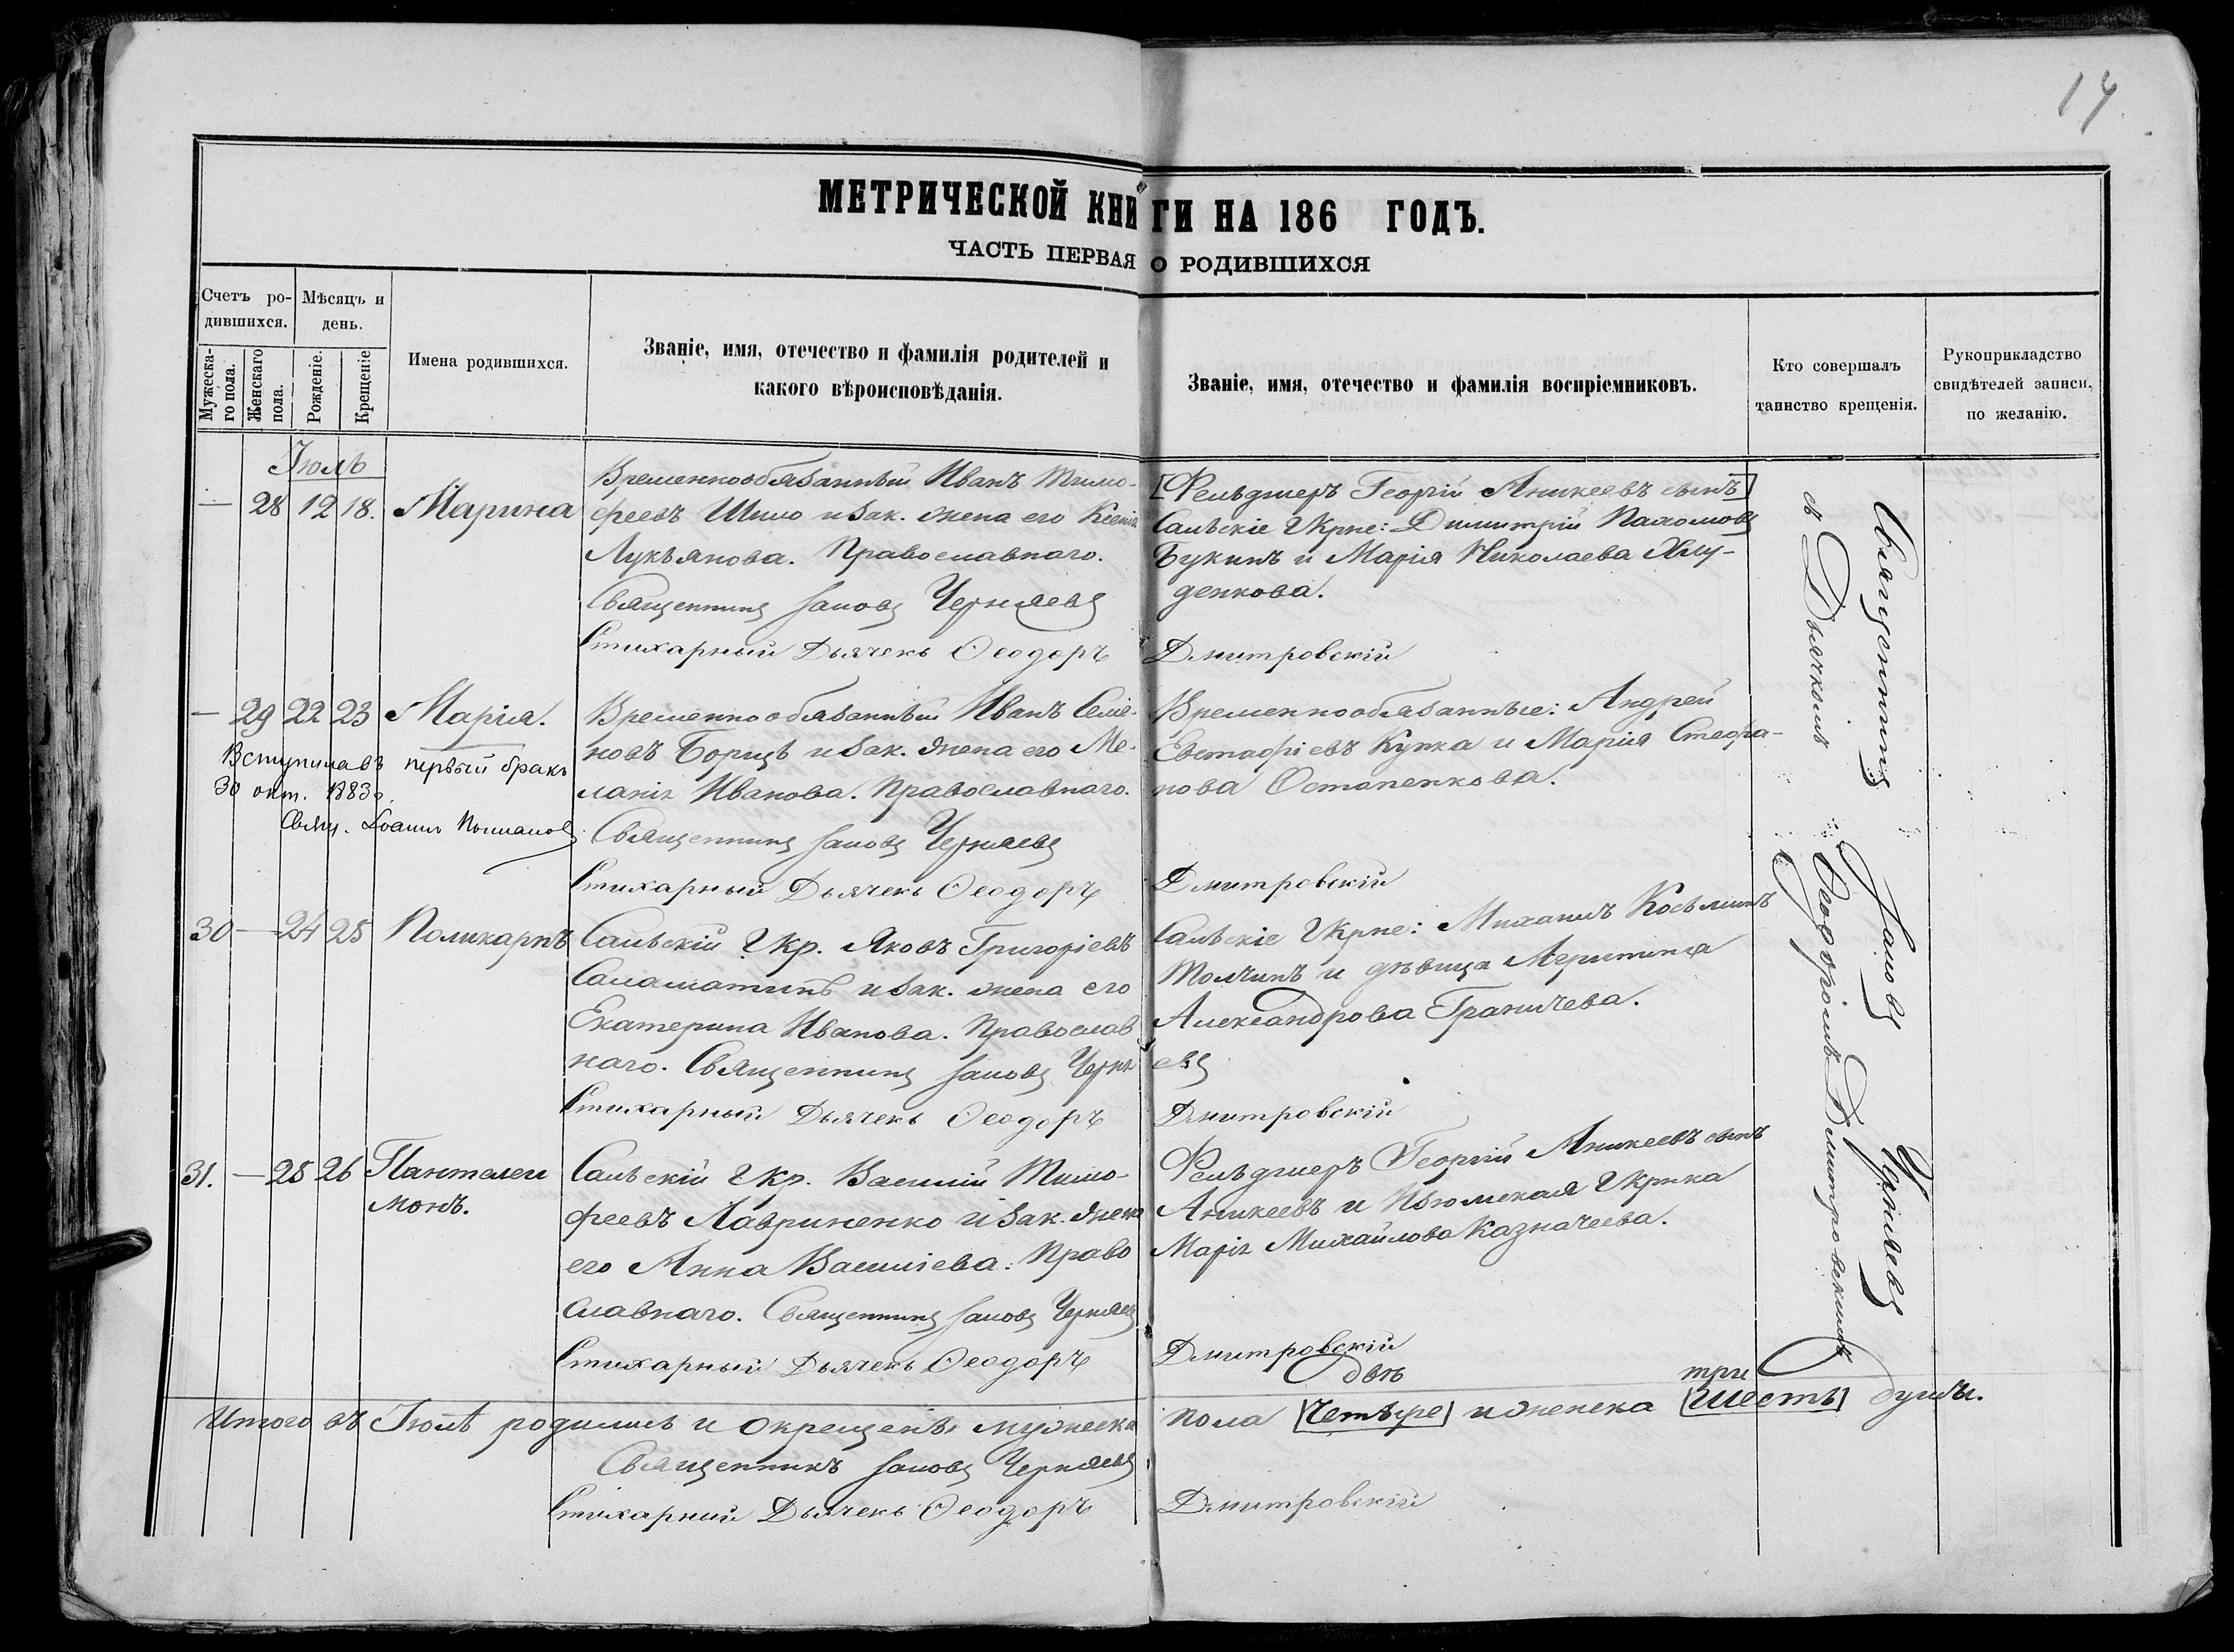 14.
МЕТРИЧЕСКОЙ КНИГИ НА 186 ГОДЪ.
ЧАСТЬ ПЕРВАЯ О РОДИВШИХСЯ
Счетъ ро-
дившихся.
Мѣсяцъ и
день.
Мужеска-
го пола.
Женскаго
пола.
Рожденіе.
Крещеніе
Имена родившихся.
Званіе, имя, отечество и фамилія родителей и
какого вѣроисповѣданія.
Званіе, имя, отечество и фамилія воспріемниковъ.
Кто совершалъ
таинство крещенія.
Рукоприкладство
свидѣтелей записи,
по желанію.
Іюль
— 28 12 18. Марина
Временнообязанный Иванъ Тимо-
феевъ Шило и зак. жена его Ксенія
Лукьянова. Православнаго.
Священникъ Іаковъ Черняевъ
Стихарный Дьячекъ Ѳеодоръ Дмитровскій
[Фельдшеръ Георгій Аникеевъ сынъ]
Сальскіе Укрне: Димитрій Пахомовъ
Букинъ и Марія Николаева Хлу-
денкова.
— 29 22 23 Марія.
Вступила въ первый бракъ
30 окт. 1883 г.
Свящ. Іоаннъ
Временнообязанный Иванъ Семе-
новъ Борщъ и зак. жена его Ме-
ланія Иванова. Православнаго.
Священникъ Іаковъ Черняевъ
Стихарный Дьячекъ Ѳеодоръ Дмитровскій
Временнообязанные: Андрей
Евстафіевъ Купка и Марія Стефа-
нова Остапенкова.
30 — 24 25 Поликарпъ
Сальскій Укр. Яковъ Григоріевъ
Саламатинъ и зак. жена его
Екатерина Иванова. Православ
наго. Священникъ Іаковъ Черняевъ
Стихарный Дьячекъ Ѳеодоръ Дмитровскій
Сальскіе Укрне: Михаилъ Козьминъ
Толчинъ и дѣвица
Александрова Граничева.
31. — 25 26 Пантелеи
монъ.
Сальскій Укр. Василій Тимо-
феевъ Лавриненко и зак. жена
его Анна Васильева. Право
славнаго. Священникъ Іаковъ Черняевъ
Стихарный Дьячекъ Ѳеодоръ Дмитровскій
Фельдшеръ Георгій Аникеевъ сынъ
Аникеевъ и Изюмская Укрнка
Марія Михайлова Казначеева.
Священникъ Іаковъ Черняевъ
съ Дьячкомъ Ѳеодоромъ Дмитровскимъ
двѣ три
Итого въ Іюлѣ родились и окрещены мужеска пола [четыре] и женска [шесть] душъ.
Священникъ Іаковъ Черняевъ
Стихарный Дьячекъ Ѳеодоръ Дмитровскій